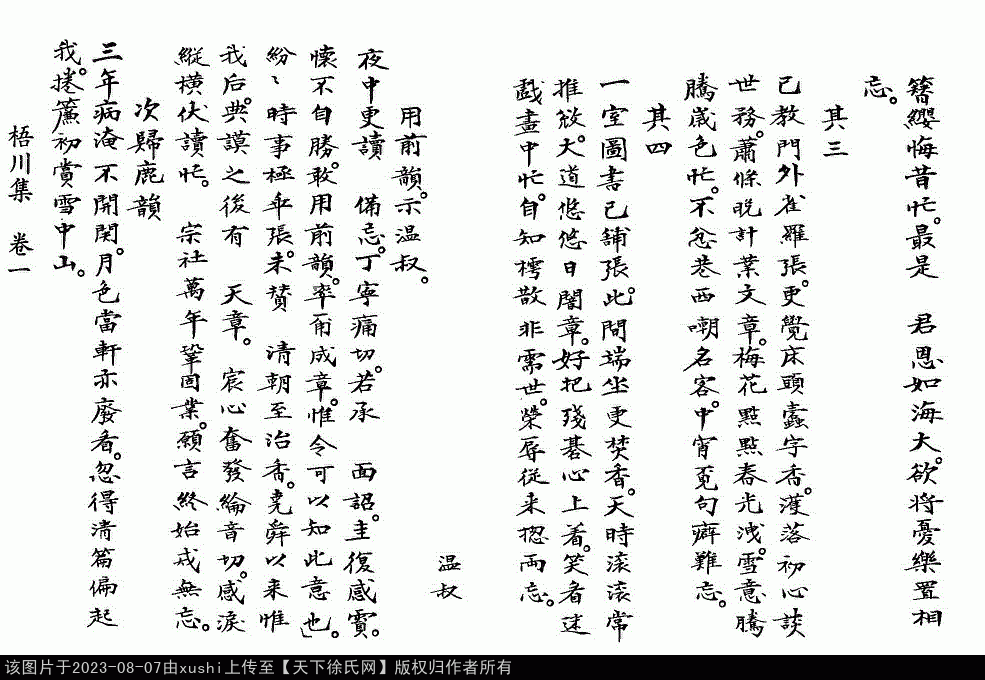 簪纓悔昔忙。最是 君恩如海大。欲將憂樂置相
忘。
其三
已教門外雀羅張。更覺床頭蠹字香。濩落初心談
世務。蕭條晩計業文章。梅花點點春光洩。雪意騰
騰歲色忙。不忿巷西嘲名客。中宵覓句癖難忘。
其四
一室圖書已鋪張。此間端坐更焚香。天時滚滚常
推放。大道悠悠日闇章。好把殘碁心上着。笑看迷
戱畫中忙。自知樗散非需世。榮辱従来揔両忘。
温叔
用前韻。示温叔。
夜中更讀 備忌。丁寧痛切。若承 面詔。圭復感賈。
懐不自勝。敢用前韻。率甭成章。惟令可以知此意也。
紛〻時事極牟張。未賛 清朝至治香。堯舜以来惟
我后。典謨之後有 天章。宸心奮發綸音切。感淚
縱橫伏讀忙。 宗社萬年鞏固業。願言終始戒無忘。
次歸鹿韻
三年病淹不開関。月色當軒亦廢看。忽得清篇偏起
我。捲簾初賞雪中山。
梧川集 卷一
该图片于2023-08-07由xushi上传至【天下徐氏网】版权归作者所有